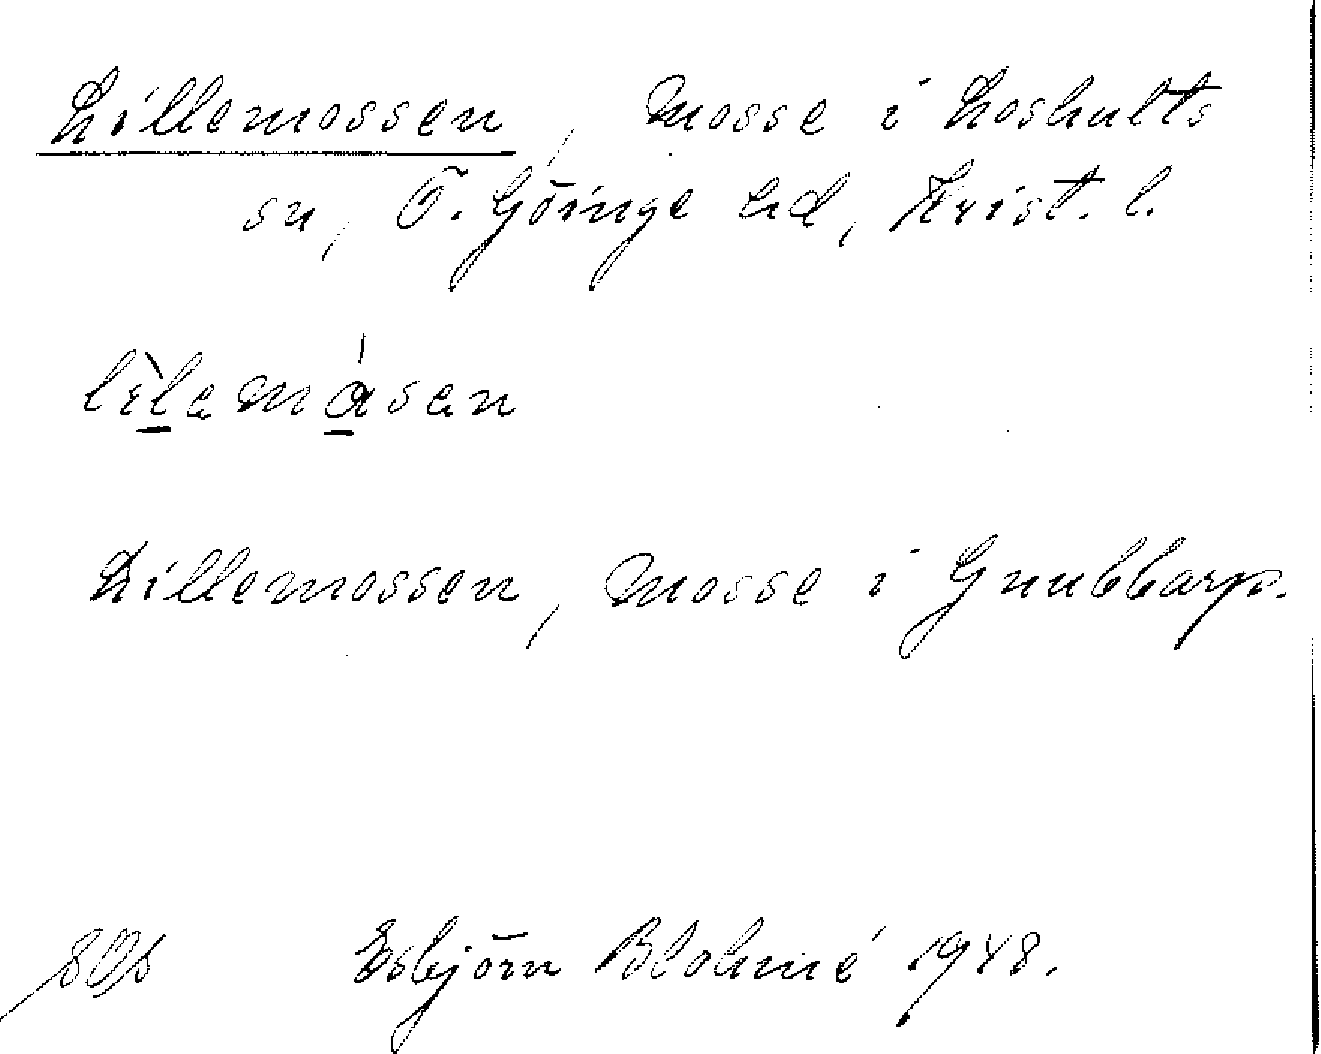 Lillemossen, mosse i Loshults
sn, Ö. Göinge hd, Krist. l.
lìlemåsen
Lillemossen, mosse i Gnubbarp.
Esbjörn Blohmé 1948.